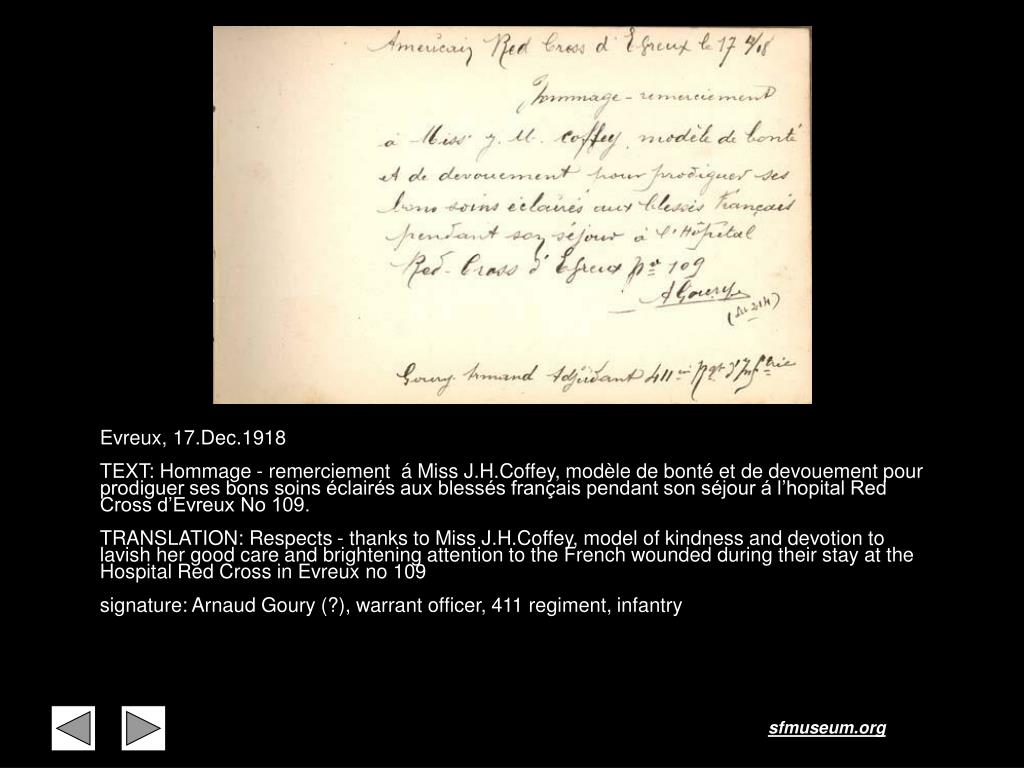 Americain Red Cross d'Evreux le 17 12/18
Hommage - remerciement
à Miss J. M. Coffey, modèle de bonté
et de devouement pour prodiguer ses
bons soins éclairés aux blessés Français
pendant son séjour à l'Hôpital
Red-Cross d'Evreux No 109
AGoury
Goury Armand Adjudant 411me Rgt d'Inftrie
Evreux, 17.Dec.1918
TEXT: Hommage - remerciement  á Miss J.H.Coffey, modèle de bonté et de devouement pour
prodiguer ses bons soins éclairés aux blessés français pendant son séjour á l’hopital Red
Cross d’Evreux No 109.
TRANSLATION: Respects - thanks to Miss J.H.Coffey, model of kindness and devotion to
lavish her good care and brightening attention to the French wounded during their stay at the
Hospital Red Cross in Evreux no 109
signature: Arnaud Goury (?), warrant officer, 411 regiment, infantry
sfmuseum.org